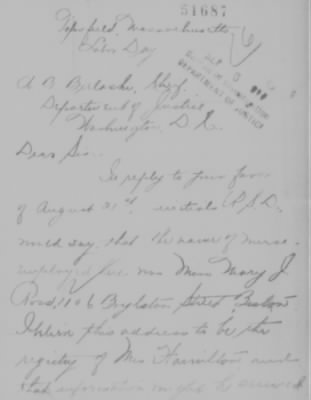 51687
Topsfield, Massachusetts
Labor Day
A B Bielaski, Chief,
Department of Justice
Washington, D.C.
DEPARTMENT OF JUSTICE
Dear Sir.
In reply to your favor
of August 31st, initials R.S.D.
would say that the name of nurse
employed here was Miss Mary J
Road, 1106 Boylston Street, Boston.
I believe this address to be the
registry of Mrs Hamilton and
that information might be secured